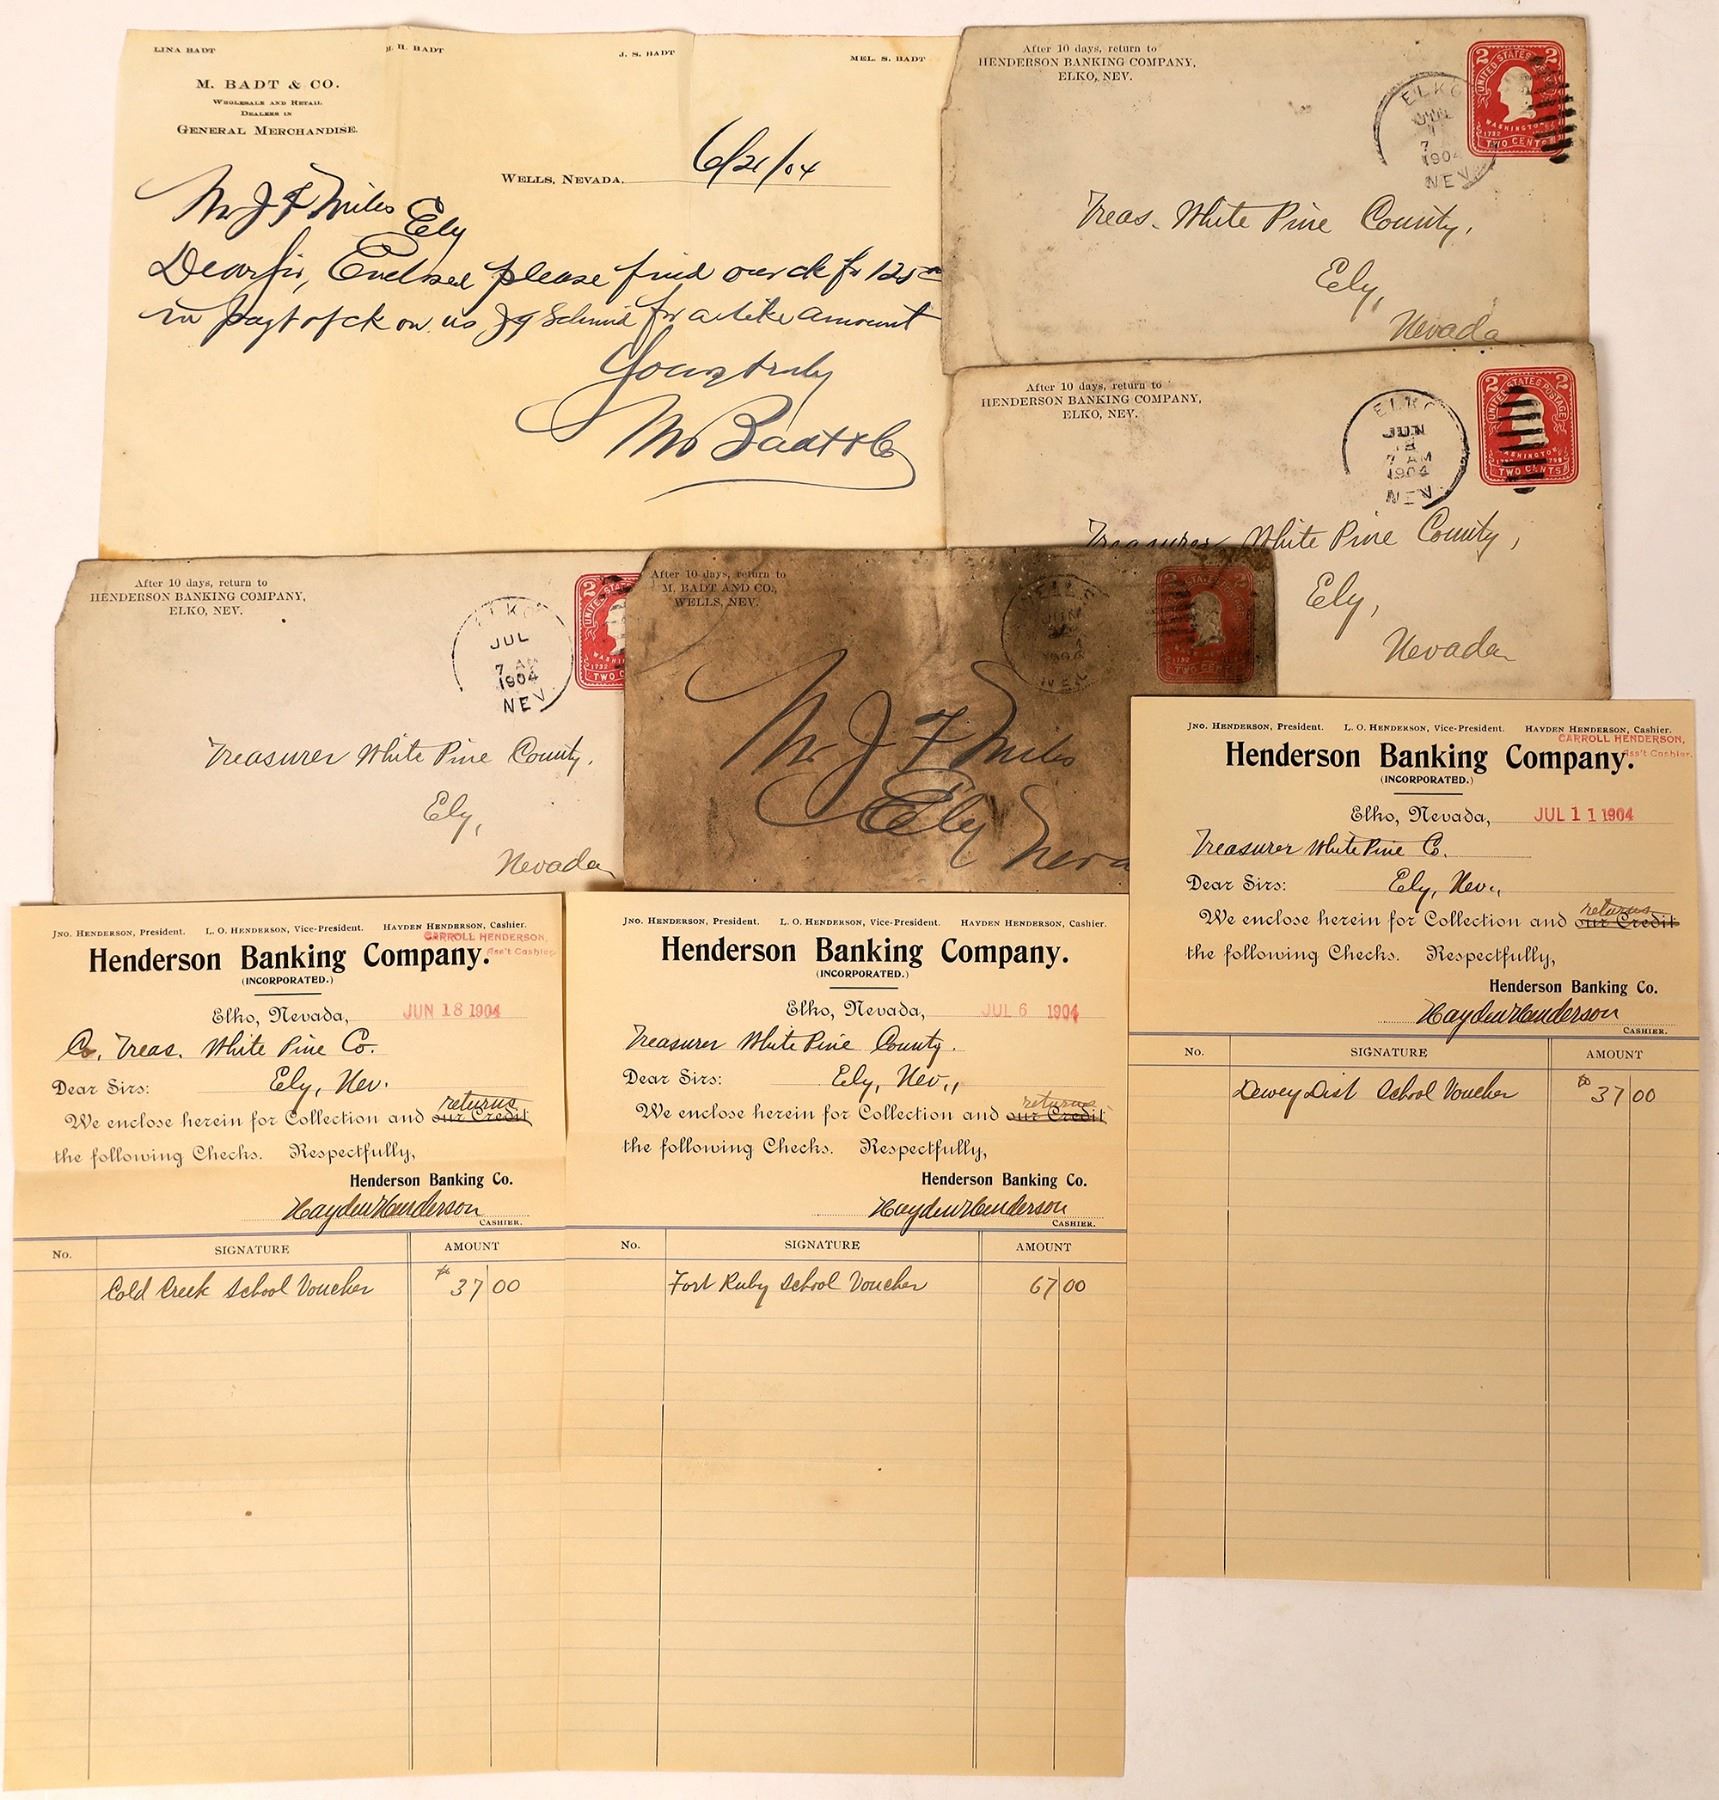 LINA BADT
H. H. BADT
J. S. BADT
MEL. S. BADT
M. BADT & CO.
WHOLESALE AND RETAIL
DEALERS IN
GENERAL MERCHANDISE.
WELLS, NEVADA. 6/21/04
Mr J F Miles Ely
Dear Sir, Enclosed please find our ck for 125
in payt of ck on us J G Schmid for a like amount
Yours truly
M Badt & Co
After 10 days, return to
HENDERSON BANKING COMPANY,
ELKO, NEV.
ELKO
7
1904
NEV
2 UNITED STATES 2
WASHINGTON
1732
TWO CENTS
Treas. White Pine County,
Ely,
Nevada
After 10 days, return to
HENDERSON BANKING COMPANY,
ELKO, NEV.
ELKO
JUN
18
7 AM
1904
NEV
2 UNITED STATES POSTAGE 2
WASHINGTON
TWO CENTS
Treasurer White Pine County,
Ely,
Nevada
After 10 days, return to
HENDERSON BANKING COMPANY,
ELKO, NEV.
ELKO
JUL
7 AM
1904
NEV.
2 UNITED STATES
1732
TWO
Treasurer White Pine County.
Ely,
Nevada
After 10 days, return to
M. BADT AND CO.,
WELLS, NEV.
JUN
NEV
TWO CENTS
Mr J F Miles
Ely
Neva
JNO. HENDERSON, President. L. O. HENDERSON, Vice-President. HAYDEN HENDERSON, Cashier.
CARROLL HENDERSON,
Ass't Cashier.
Henderson Banking Company.
(INCORPORATED.)
Elko, Nevada, JUL 11 1904
Treasurer White Pine Co.
Dear Sirs: Ely, Nev.,
returns
We enclose herein for Collection and our Credit
the following Checks. Respectfully,
Henderson Banking Co.
Hayden Henderson
CASHIER.
No. SIGNATURE AMOUNT
Dewey Dist School Voucher $37 00
JNO. HENDERSON, President. L. O. HENDERSON, Vice-President. HAYDEN HENDERSON, Cashier.
CARROLL HENDERSON,
Ass't Cashier
Henderson Banking Company.
(INCORPORATED.)
Elko, Nevada, JUN 18 1904
Co. Treas. White Pine Co.
Dear Sirs: Ely, Nev.
returns
We enclose herein for Collection and our Credit
the following Checks. Respectfully,
Henderson Banking Co.
Hayden Henderson
CASHIER.
No. SIGNATURE AMOUNT
Cold Creek School Voucher $37 00
JNO. HENDERSON, President. L. O. HENDERSON, Vice-President. HAYDEN HENDERSON, Cashier.
Henderson Banking Company.
(INCORPORATED.)
Elko, Nevada, JUL 6 1904
Treasurer White Pine County.
Dear Sirs: Ely, Nev.,
returns
We enclose herein for Collection and our Credit
the following Checks. Respectfully,
Henderson Banking Co.
Hayden Henderson
CASHIER.
No. SIGNATURE AMOUNT
Fort Ruby School Voucher 67 00